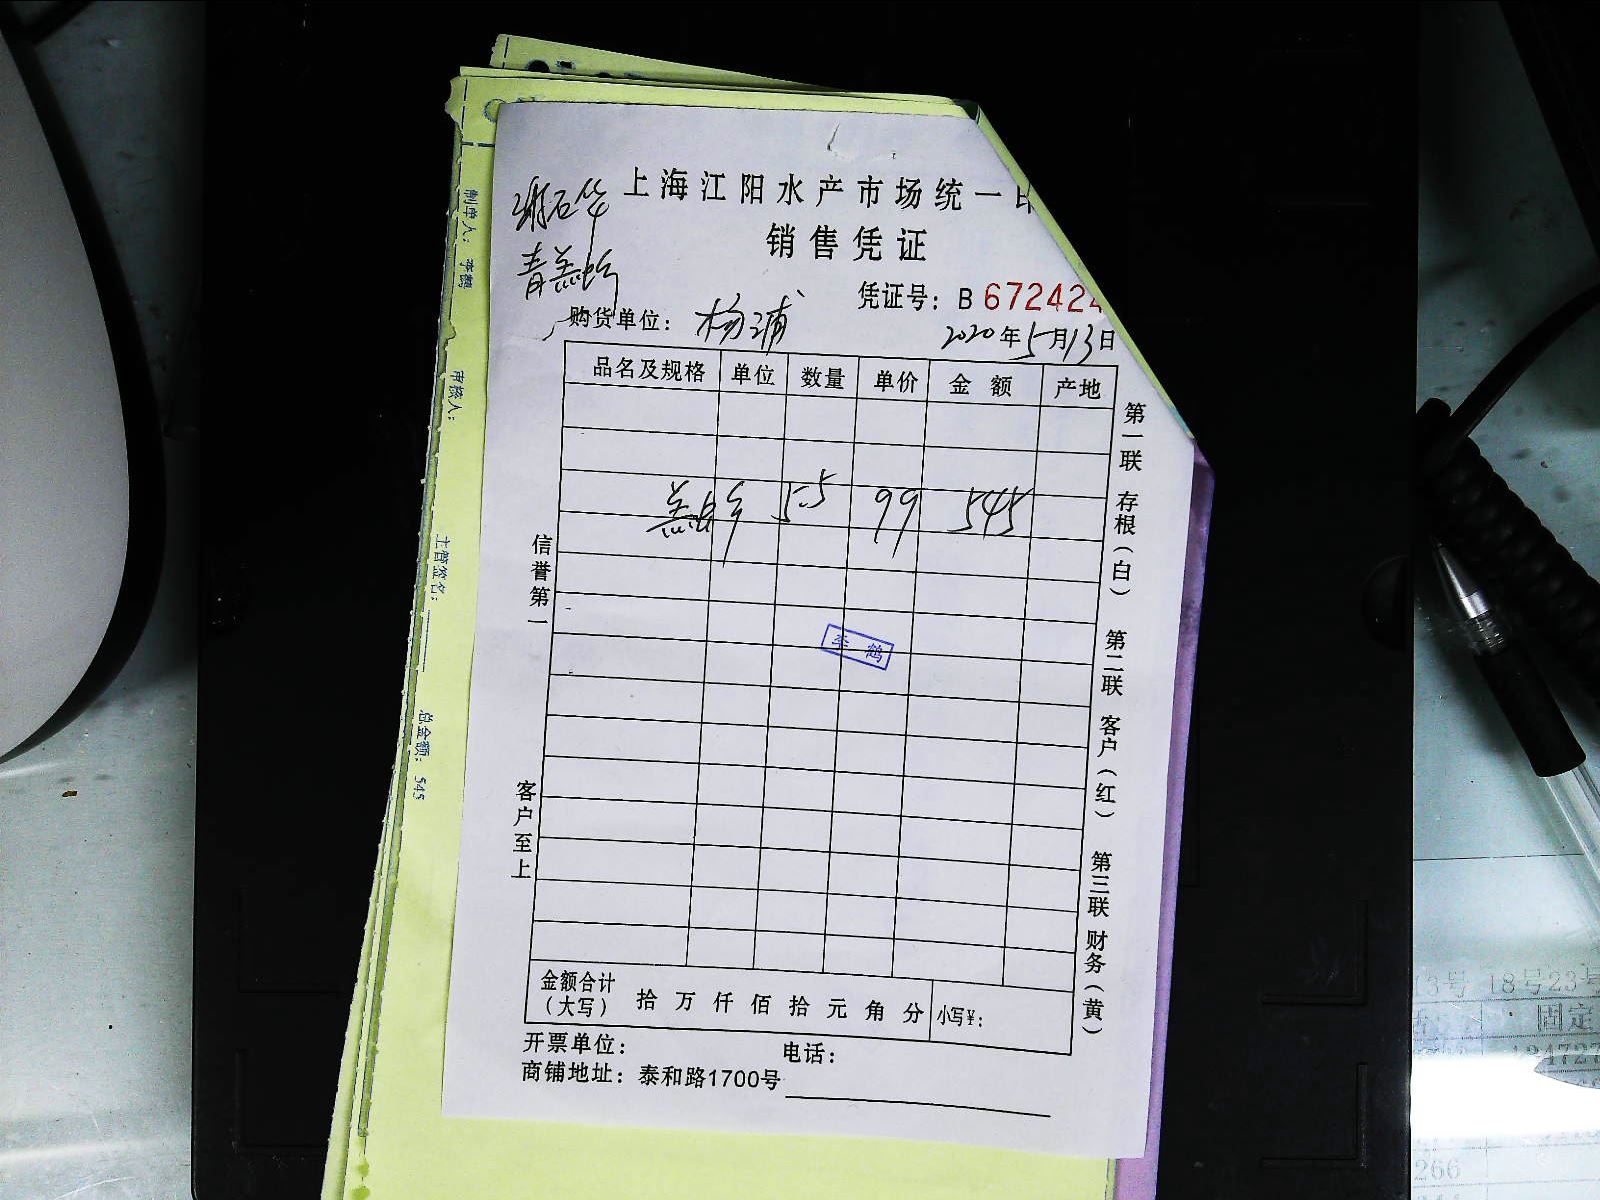 上海江阳水产市场统一
销售凭证
凭证号：B 672424
购货单位：杨浦
2020年5月13日
品名及规格 单位 数量 单价 金额 产地
5.5 99 545
李鹤
信誉第一
客户至上
第一联 存根（白）
第二联 客户（红）
第三联 财务（黄）
金额合计（大写） 拾 万 仟 佰 拾 元 角 分 小写¥：
开票单位： 电话：
商铺地址：泰和路1700号
制单人：李鹤
审核人：
主管签名：
总金额：545
18号23号
固定
266